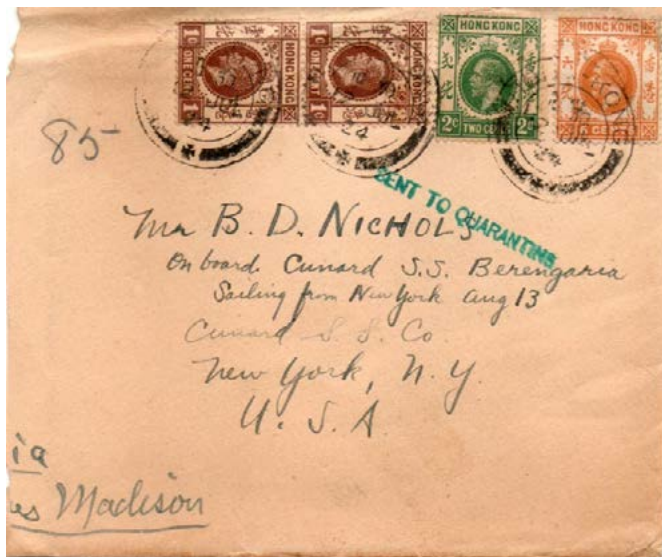 HONG KONG HONG KONG HONGKONG HONGKONG
1C ONE CENT 1C 1C ONE CENT 1C
2C TWO CENTS 2C 6 CENTS
24 24 24
85
SENT TO QUARANTINE
Mr B. D. NICHOLS
On board Cunard S.S. Berengaria
Sailing from New York Aug 13
Cunard S. S. Co.
New York, N. Y.
U. S. A.
ia
es Madison